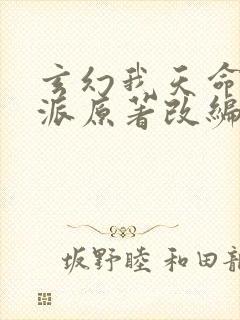 玄幻我天命
派原著改编
坂野睦 和田龍